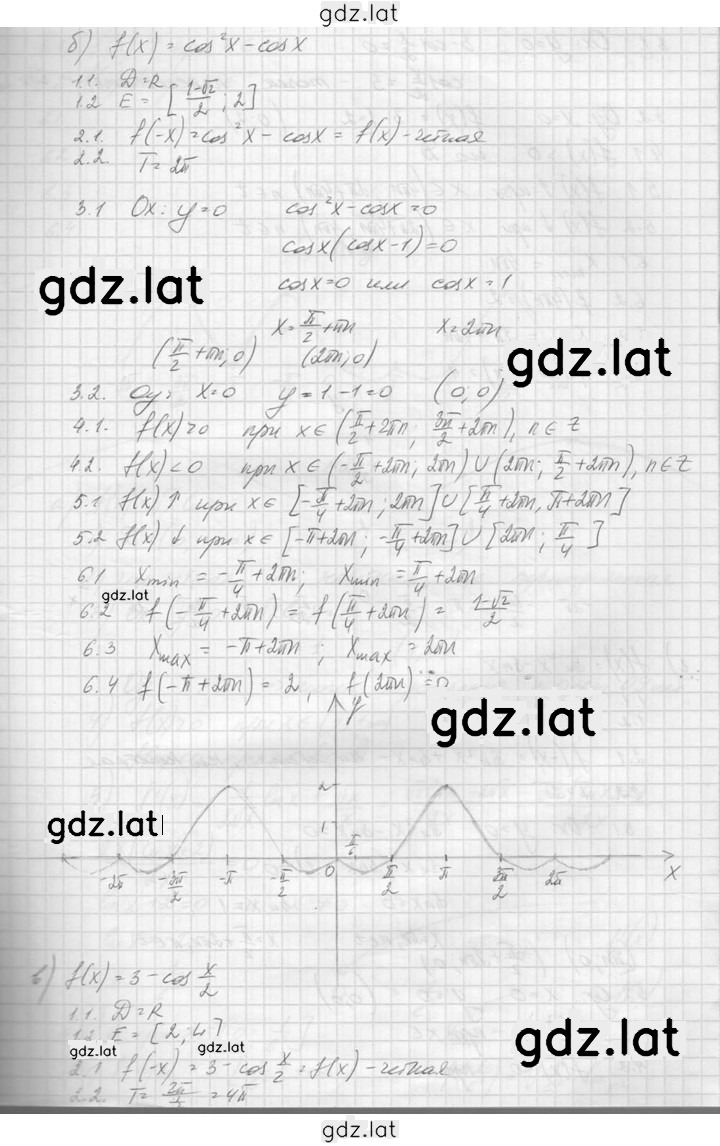 gdz.lat
б) f(x) = cos²x - cosx
1.1. D=R
1.2 E = [(1-√2)/2 ; 2]
2.1. f(-x) = cos²x - cosx = f(x) - четная
2.2. T = 2π
3.1 Ox: y=0 cos²x - cosx = 0
cosx(cosx-1) = 0
gdz.lat
cosx=0 или cosx=1
x = π/2 + πn x = 2πn
gdz.lat
(π/2 + πn; 0) (2πn; 0)
3.2. Oy: x=0 y = 1-1 = 0 (0; 0)
4.1. f(x)>0 при x∈(π/2+2πn; 3π/2+2πn), n∈Z
4.2. f(x)<0 при x∈(-π/2+2πn; 2πn)∪(2πn; π/2+2πn), n∈Z
5.1 f(x)↑ при x∈[-π/4+2πn; 2πn]∪[π/4+2πn, π+2πn]
5.2 f(x)↓ при x∈[-π+2πn; -π/4+2πn]∪[2πn; π/4]
6.1 xmin = -π/4+2πn; xmin = π/4+2πn
gdz.lat
6.2 f(-π/4+2πn) = f(π/4+2πn) = (1-√2)/2
6.3 xmax = -π+2πn; xmax = 2πn
6.4 f(-π+2πn) = 2, f(2πn) = 0
y
gdz.lat
2
1
gdz.lat
-2π -3π/2 -π -π/2 0 π/2 π 3π/2 2π x
в) f(x) = 3 - cos x/2
1.1. D=R
1.2. E = [2; 4]
gdz.lat
gdz.lat gdz.lat
2.1 f(-x) = 3 - cos x/2 = f(x) - четная
2.2. T = 2π/½ = 4π
gdz.lat